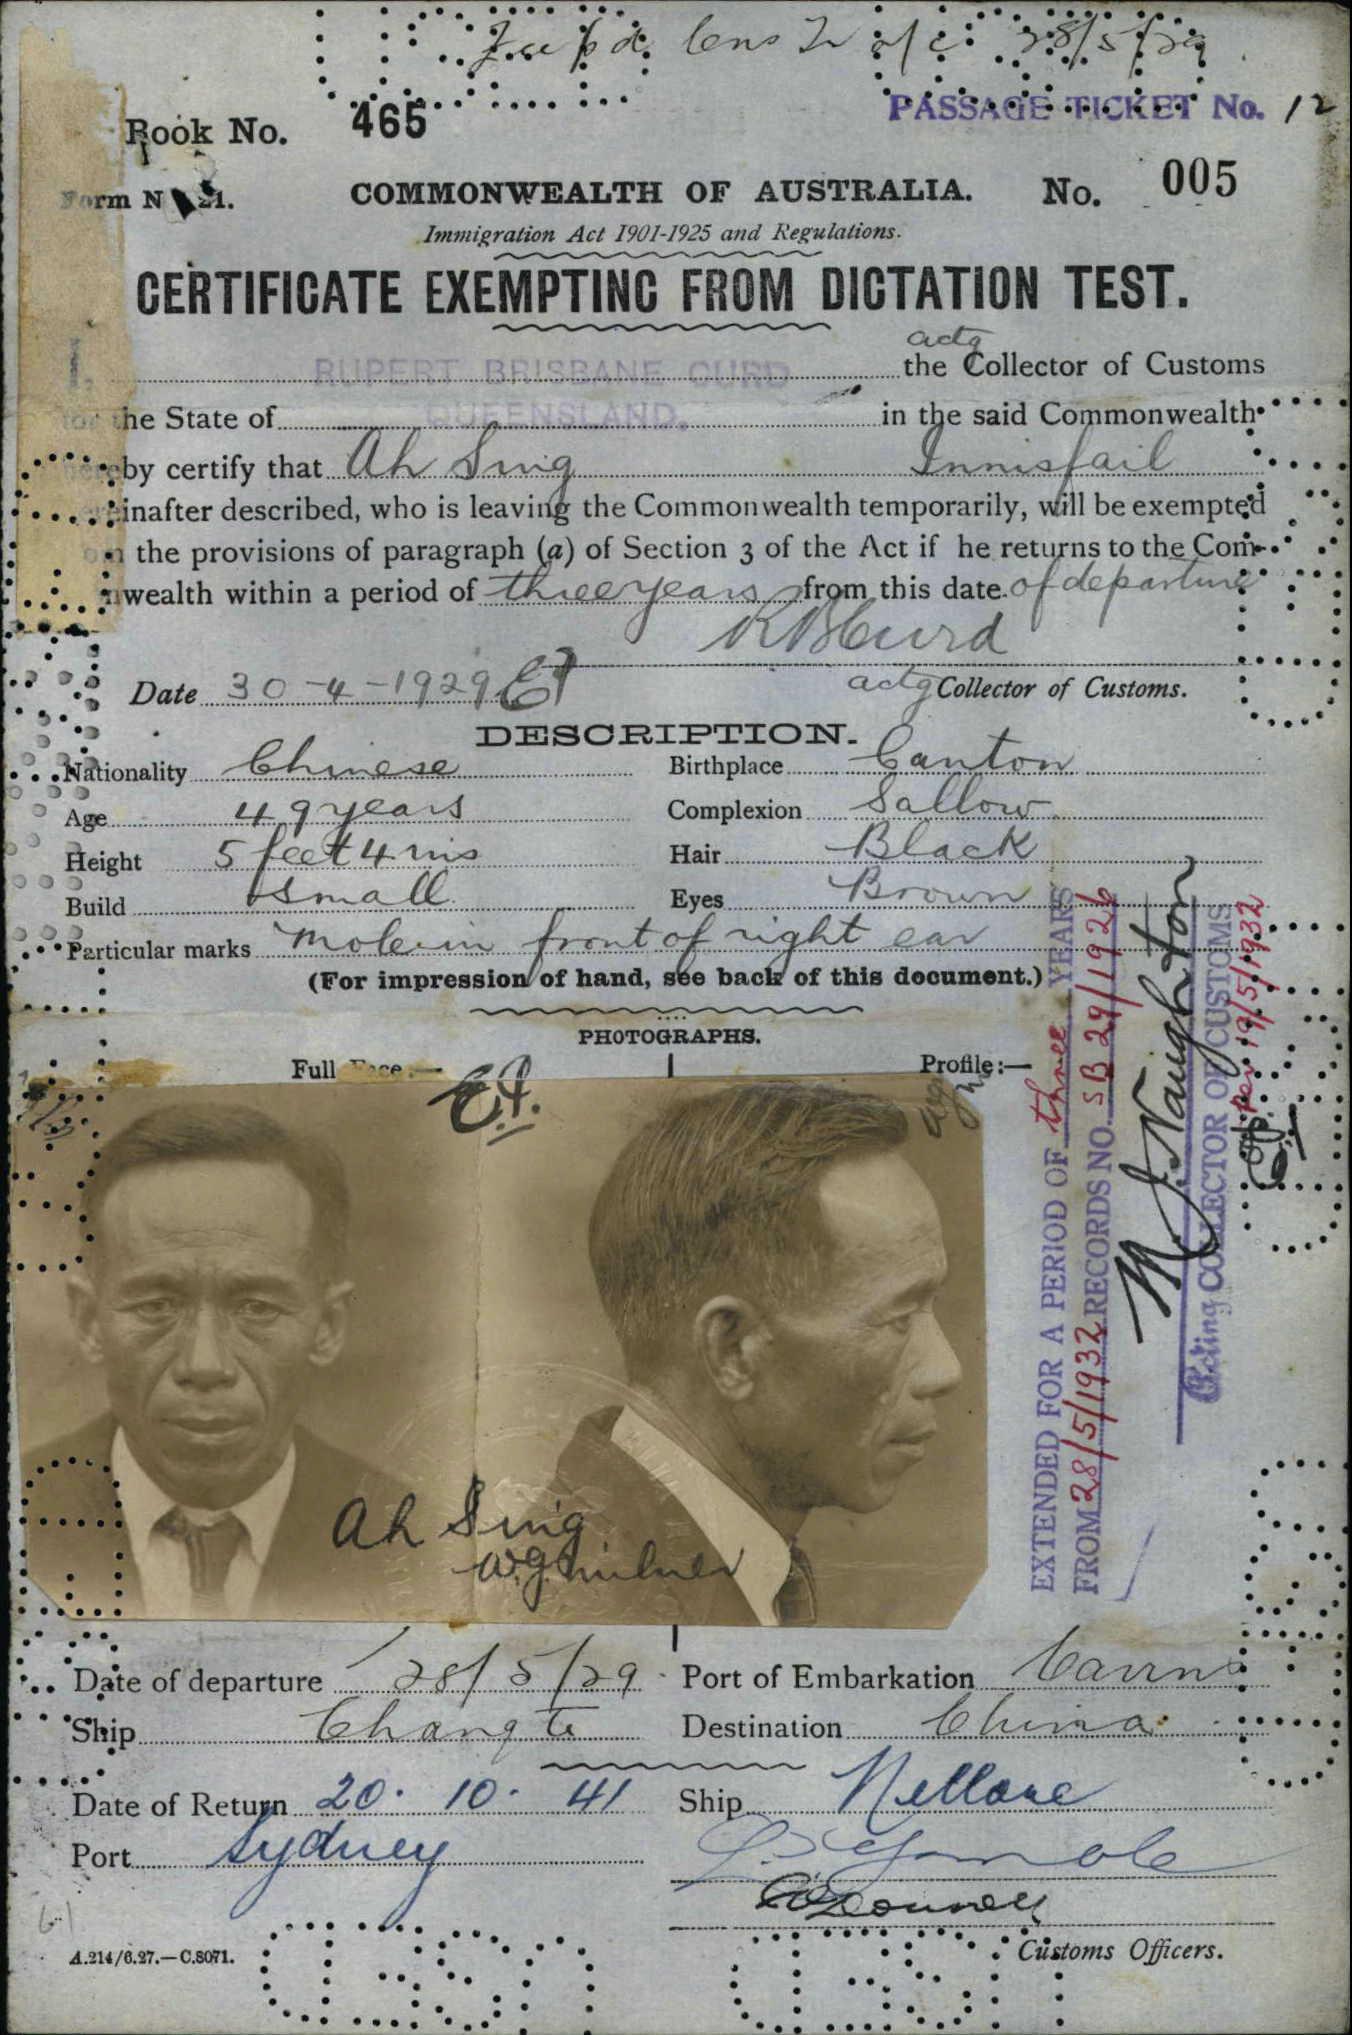 28/5/29
Book No. 465
PASSAGE TICKET No. 12
Form No 21.
COMMONWEALTH OF AUSTRALIA. No. 005
Immigration Act 1901-1925 and Regulations.
CERTIFICATE EXEMPTING FROM DICTATION TEST.
actg
I, RUPERT BRISBANE CURD the Collector of Customs
for the State of QUEENSLAND. in the said Commonwealth
hereby certify that Ah Sing Innisfail
hereinafter described, who is leaving the Commonwealth temporarily, will be exempted
from the provisions of paragraph (a) of Section 3 of the Act if he returns to the Com-
nwealth within a period of three years from this date of departure
R B Curd
Date 30-4-1929 actg Collector of Customs.
DESCRIPTION.
Nationality Chinese Birthplace Canton
Age 49 years Complexion Sallow
Height 5 feet 4 ins Hair Black
Build small Eyes Brown
Particular marks mole in front of right ear
(For impression of hand, see back of this document.)
PHOTOGRAPHS.
Full Face:— Profile:—
Ah Sing
EXTENDED FOR A PERIOD OF three YEARS
FROM 28/5/1932 RECORDS NO. SB 29/1926
M. J. Naughton
Acting COLLECTOR OF CUSTOMS
per 19/5/1932
Date of departure 28/5/29 Port of Embarkation Cairns
Ship Changte Destination China
Date of Return 20. 10. 41 Ship Nellore
Port Sydney
Customs Officers.
A.214/6.27.—C.8071.